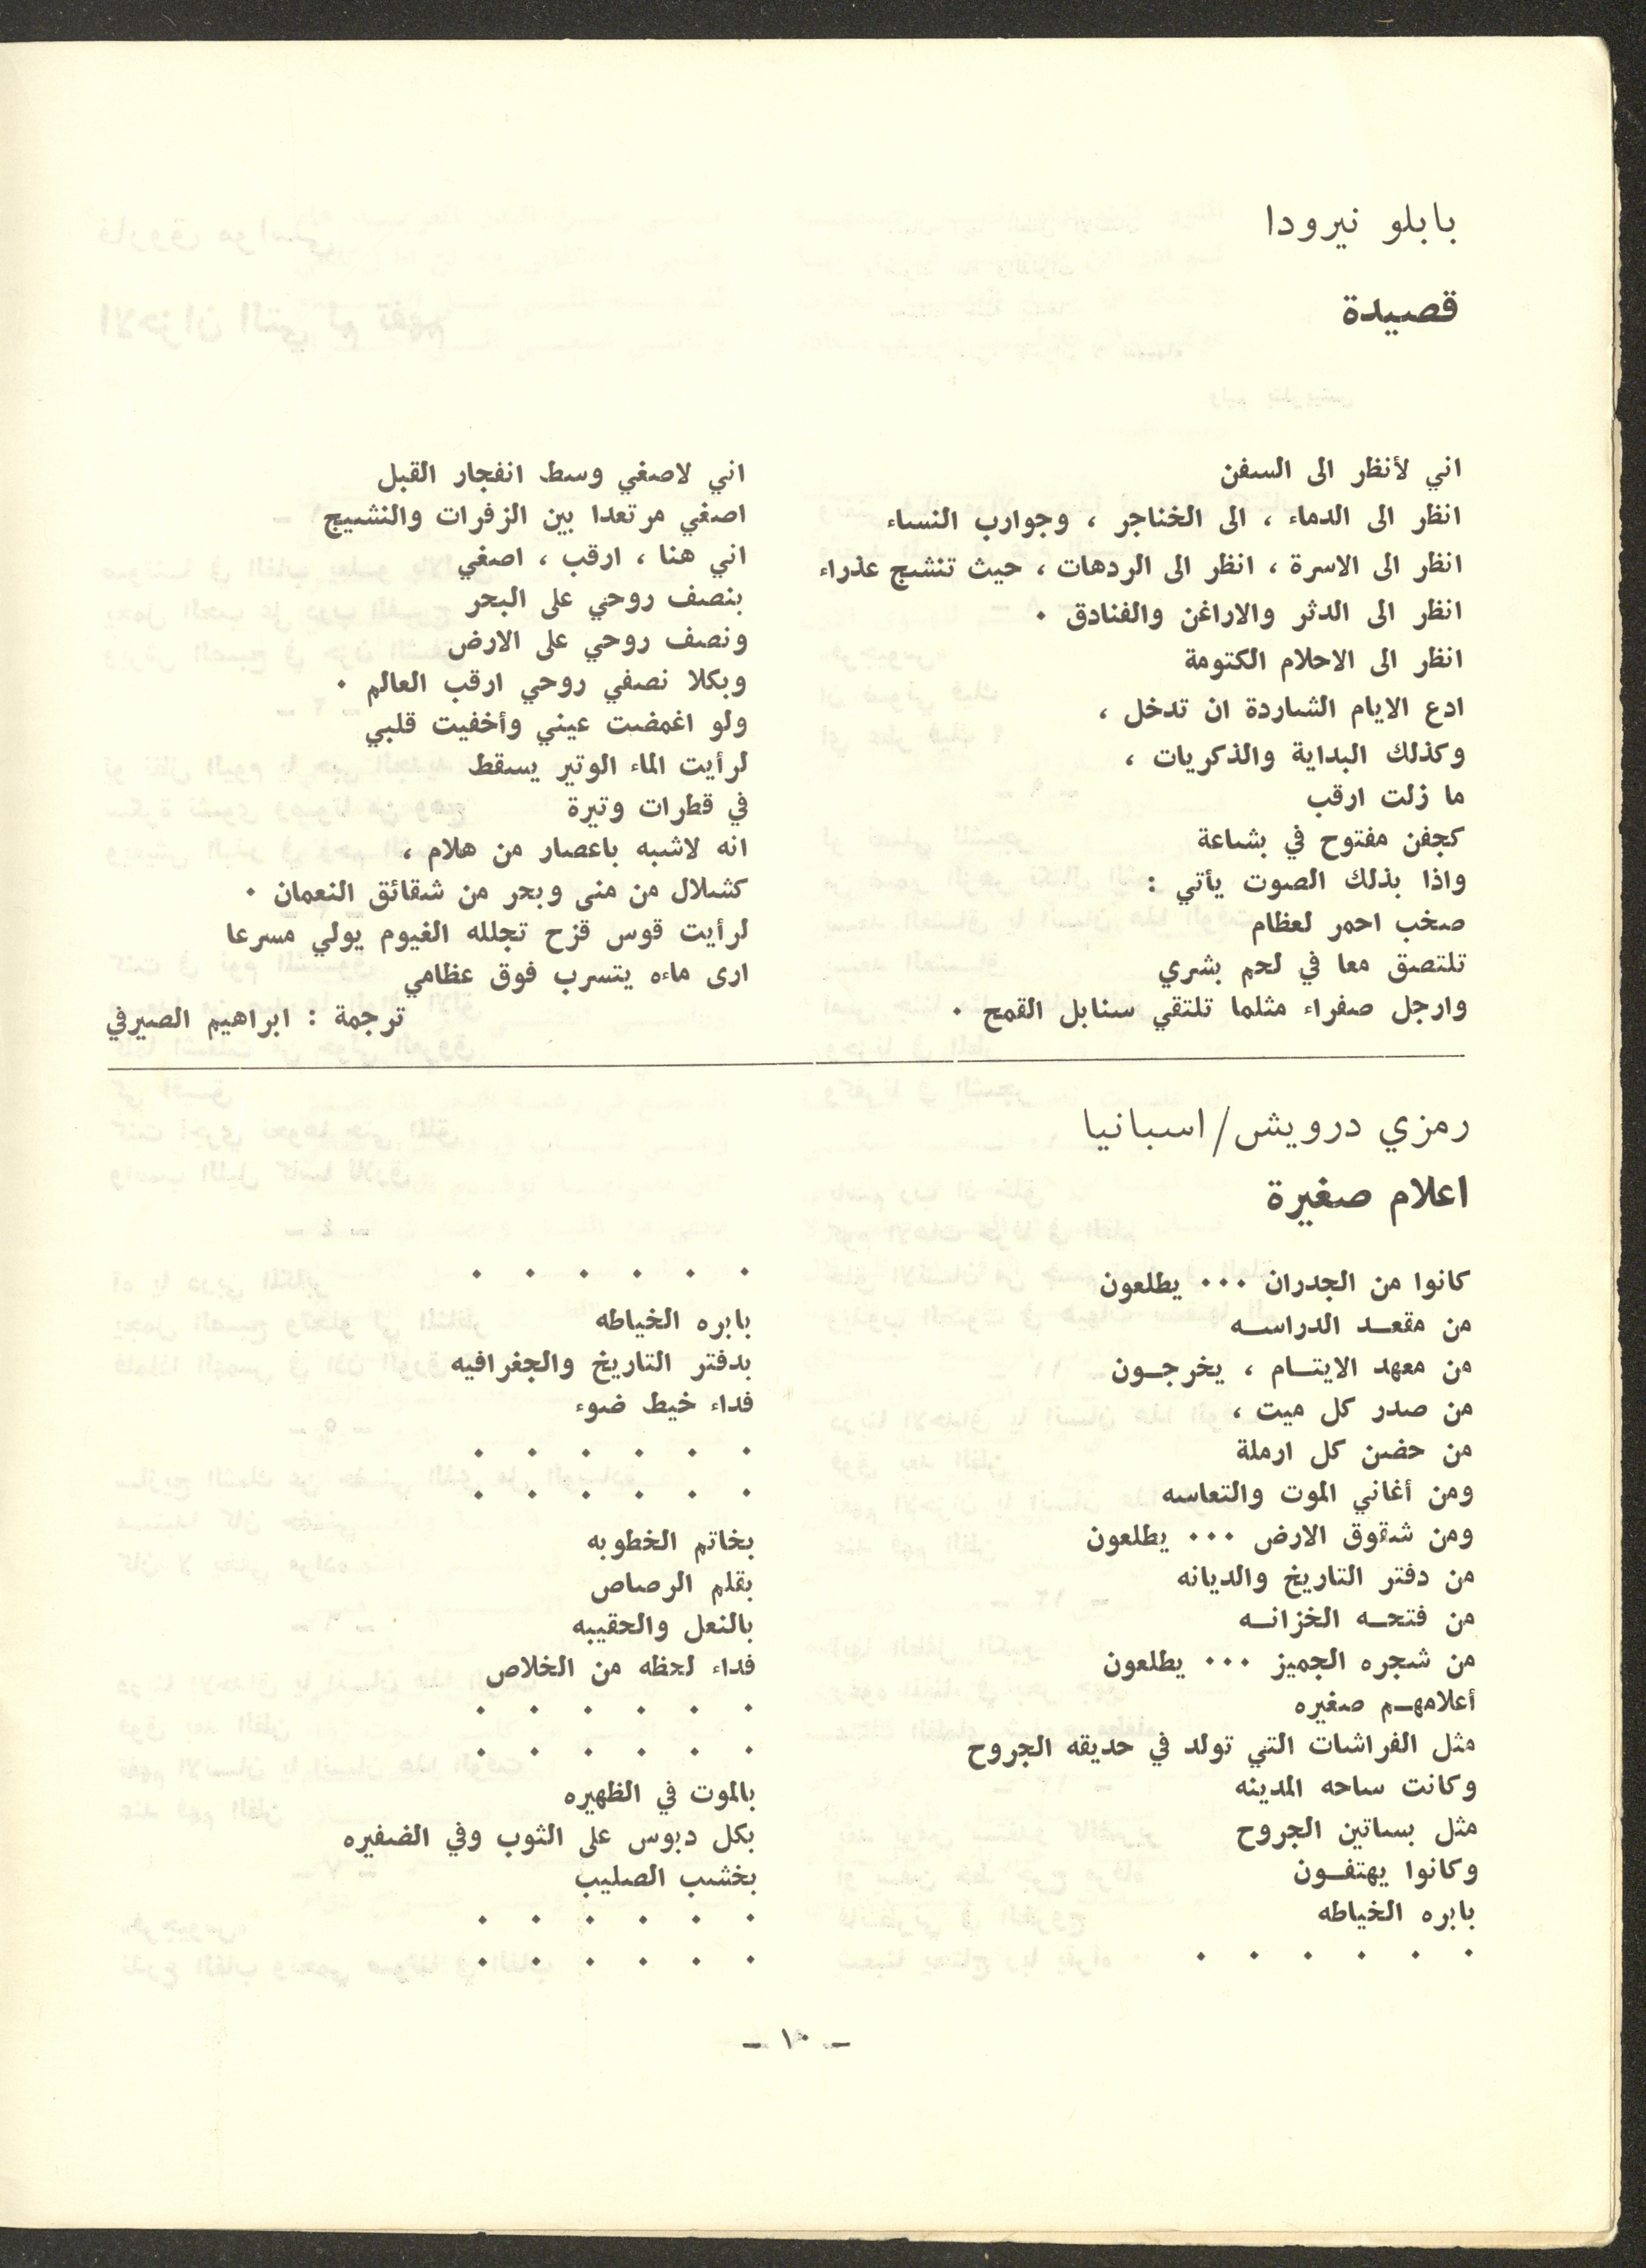 بابلو نيرودا
قصيدة
اني لأنظر الى السفن
انظر الى الدماء ، الى الخناجر ، وجوارب النساء
انظر الى الاسرة ، انظر الى الردهات ، حيث تنشج عذراء
انظر الى الدثر والاراغن والفنادق ٠
انظر الى الاحلام الكتومة
ادع الايام الشاردة ان تدخل ،
وكذلك البداية والذكريات ،
ما زلت ارقب
كجفن مفتوح في بشاعة
واذا بذلك الصوت يأتي :
صخب احمر لعظام
تلتصق معا في لحم بشري
وارجل صفراء مثلما تلتقي سنابل القمح ٠
اني لاصغي وسط انفجار القبل
اصغي مرتعدا بين الزفرات والنشيج
اني هنا ، ارقب ، اصغي
بنصف روحي على البحر
ونصف روحي على الارض
وبكلا نصفي روحي ارقب العالم ٠
ولو اغمضت عيني وأخفيت قلبي
لرأيت الماء الوتير يسقط
في قطرات وتيرة
انه لاشبه باعصار من هلام ،
كشلال من منى وبحر من شقائق النعمان ٠
لرأيت قوس قزح تجلله الغيوم يولي مسرعا
ارى ماءه يتسرب فوق عظامي
ترجمة : ابراهيم الصيرفي
رمزي درويش/اسبانيا
اعلام صغيرة
كانوا من الجدران ٠٠٠ يطلعون
من مقعـد الدراسـه
من معهد الايتـام ، يخرجـون
من صدر كل ميت ،
من حضن كل ارملة
ومن أغاني الموت والتعاسه
ومن شقوق الارض ٠٠٠ يطلعون
من دفتر التاريخ والديانه
من فتحـه الخزانـه
من شجره الجميز ٠٠٠ يطلعون
أعلامهـم صغيره
مثل الفراشات التي تولد في حديقه الجروح
وكانت ساحه المدينه
مثل بساتين الجروح
وكانوا يهتفـون
بابره الخياطه
٠ ٠ ٠ ٠ ٠ ٠
٠ ٠ ٠ ٠ ٠ ٠
بابره الخياطه
بدفتر التاريخ والجغرافيه
فداء خيط ضوء
٠ ٠ ٠ ٠ ٠ ٠
٠ ٠ ٠ ٠ ٠ ٠
بخاتم الخطوبه
بقلم الرصاص
بالنعل والحقيبه
فداء لحظه من الخلاص
٠ ٠ ٠ ٠ ٠ ٠
٠ ٠ ٠ ٠ ٠ ٠
بالموت في الظهيره
بكل دبوس على الثوب وفي الضفيره
بخشب الصليب
٠ ٠ ٠ ٠ ٠ ٠
٠ ٠ ٠ ٠ ٠ ٠
- ١٠ -